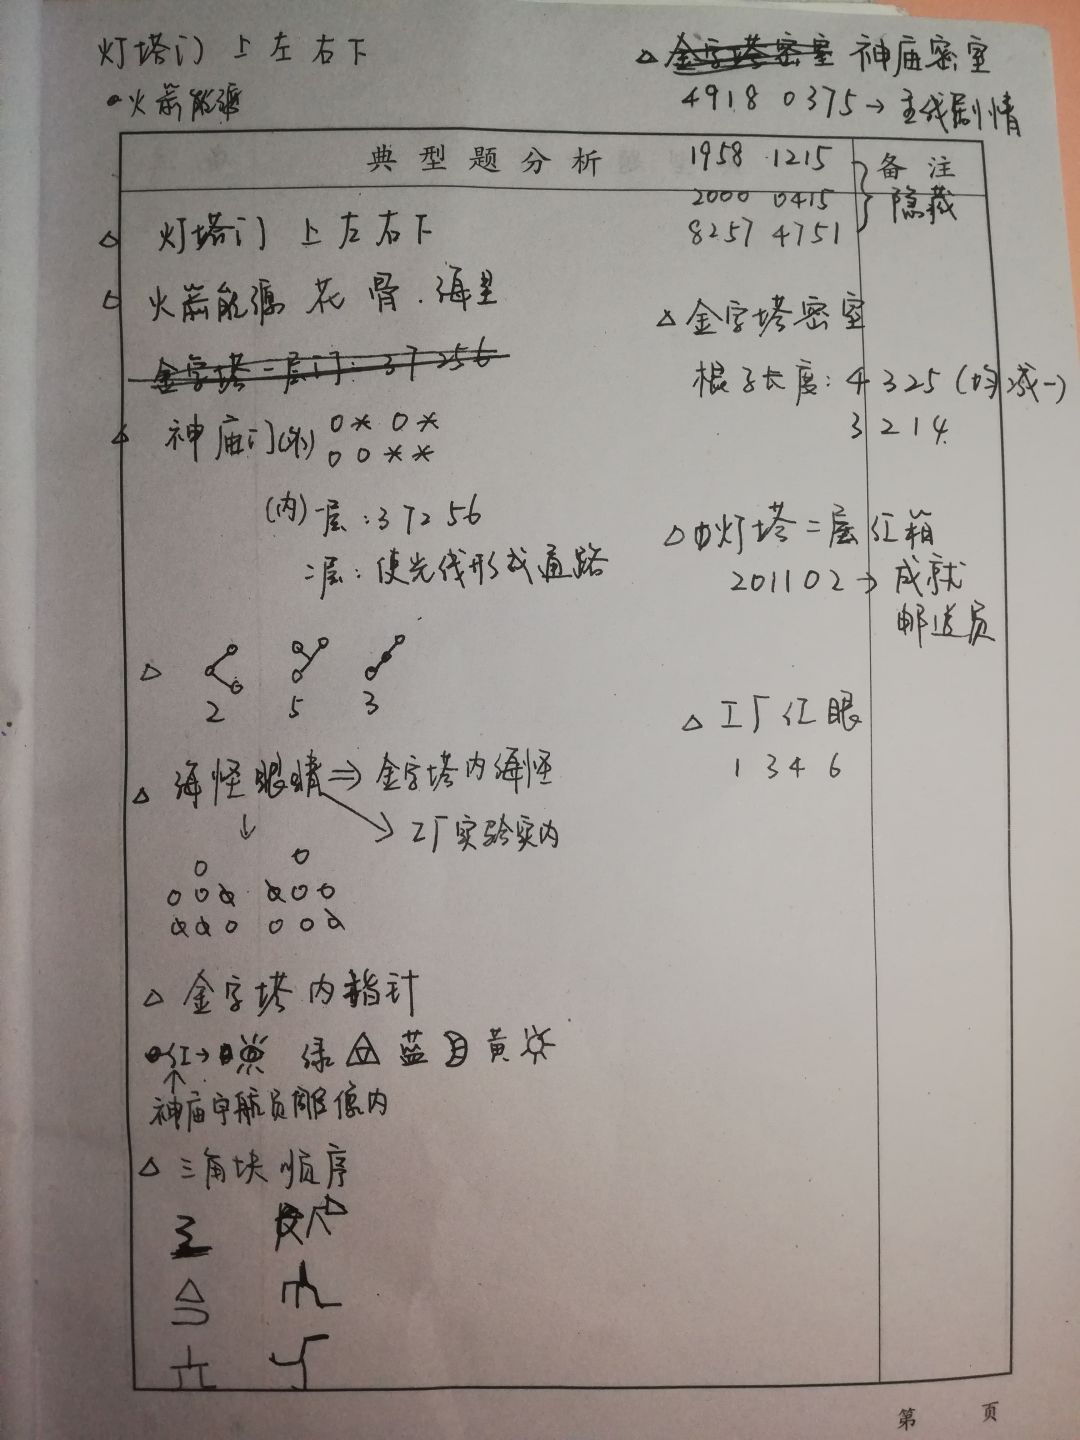 灯塔门 上 左 右 下
火箭能源
典型题分析
灯塔门 上 左 右 下
火箭能源 花 骨 . 海星
金字塔一层门: 37256
神庙门(外) 0 * 0 *
0 0 * *
(内) 一层: 37256
二层: 使光线形成通路
2 5 3
海怪眼睛 ⇒ 金字塔内海怪
工厂实验实内
金字塔内指针
红→ 绿 蓝 黄
神庙宇航员雕像内
三角块顺序
金字塔密室 神庙密室
4918 0375 → 主线剧情
1958 1215
备注
2000 0415
隐藏
8257 4751
金字塔密室
棍子长度: 4 3 2 5 (均减一)
3 2 1 4
灯塔二层红箱
201102 → 成就
邮送员
工厂红眼
1 3 4 6
第 页